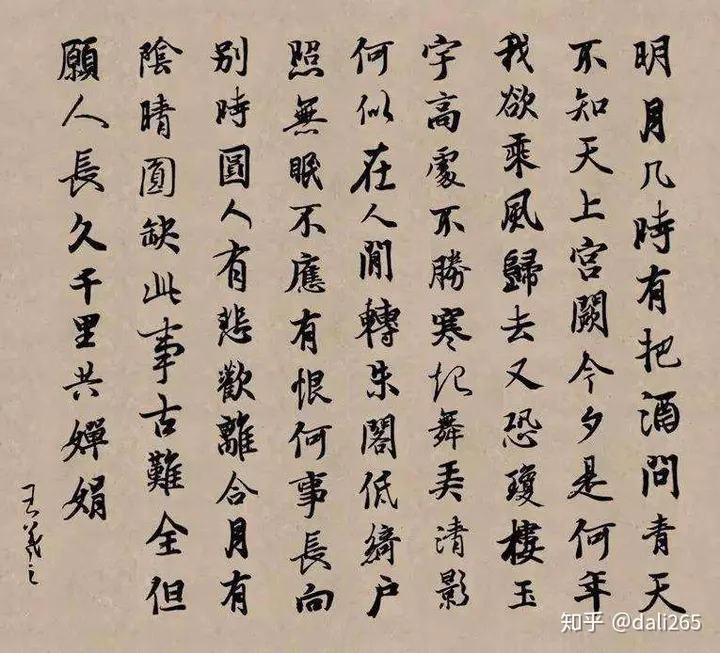 明月几時有把酒問青天
不知天上宮闕今夕是何年
我欲乘風歸去又恐瓊樓玉
宇高處不勝寒起舞弄清影
何似在人間轉朱閣低綺户
照無眠不應有恨何事長向
別時圓人有悲歡離合月有
陰晴圓缺此事古難全但
願人長久千里共嬋娟
王羲之
知乎 @dali265